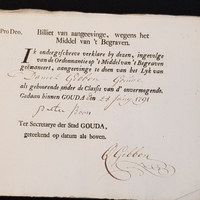 Pro Deo. Billiet van aangeevinge, wegens het
Middel van 't Begraven.
Ik ondergeschreve verklare by deezen, ingevolge
van de Ordonnantie op 't Middel van 't Begraven
geëmaneert, aangeevinge te doen van het Lyk van
Daniel Gibbon
als gehoorende onder de Classis van d' onvermogende.
Gedaan binnen GOUDA den 21 Jany 1791
pieter
Ter Secretarye der Stad GOUDA,
geteekend op datum als boven.
Gibbon